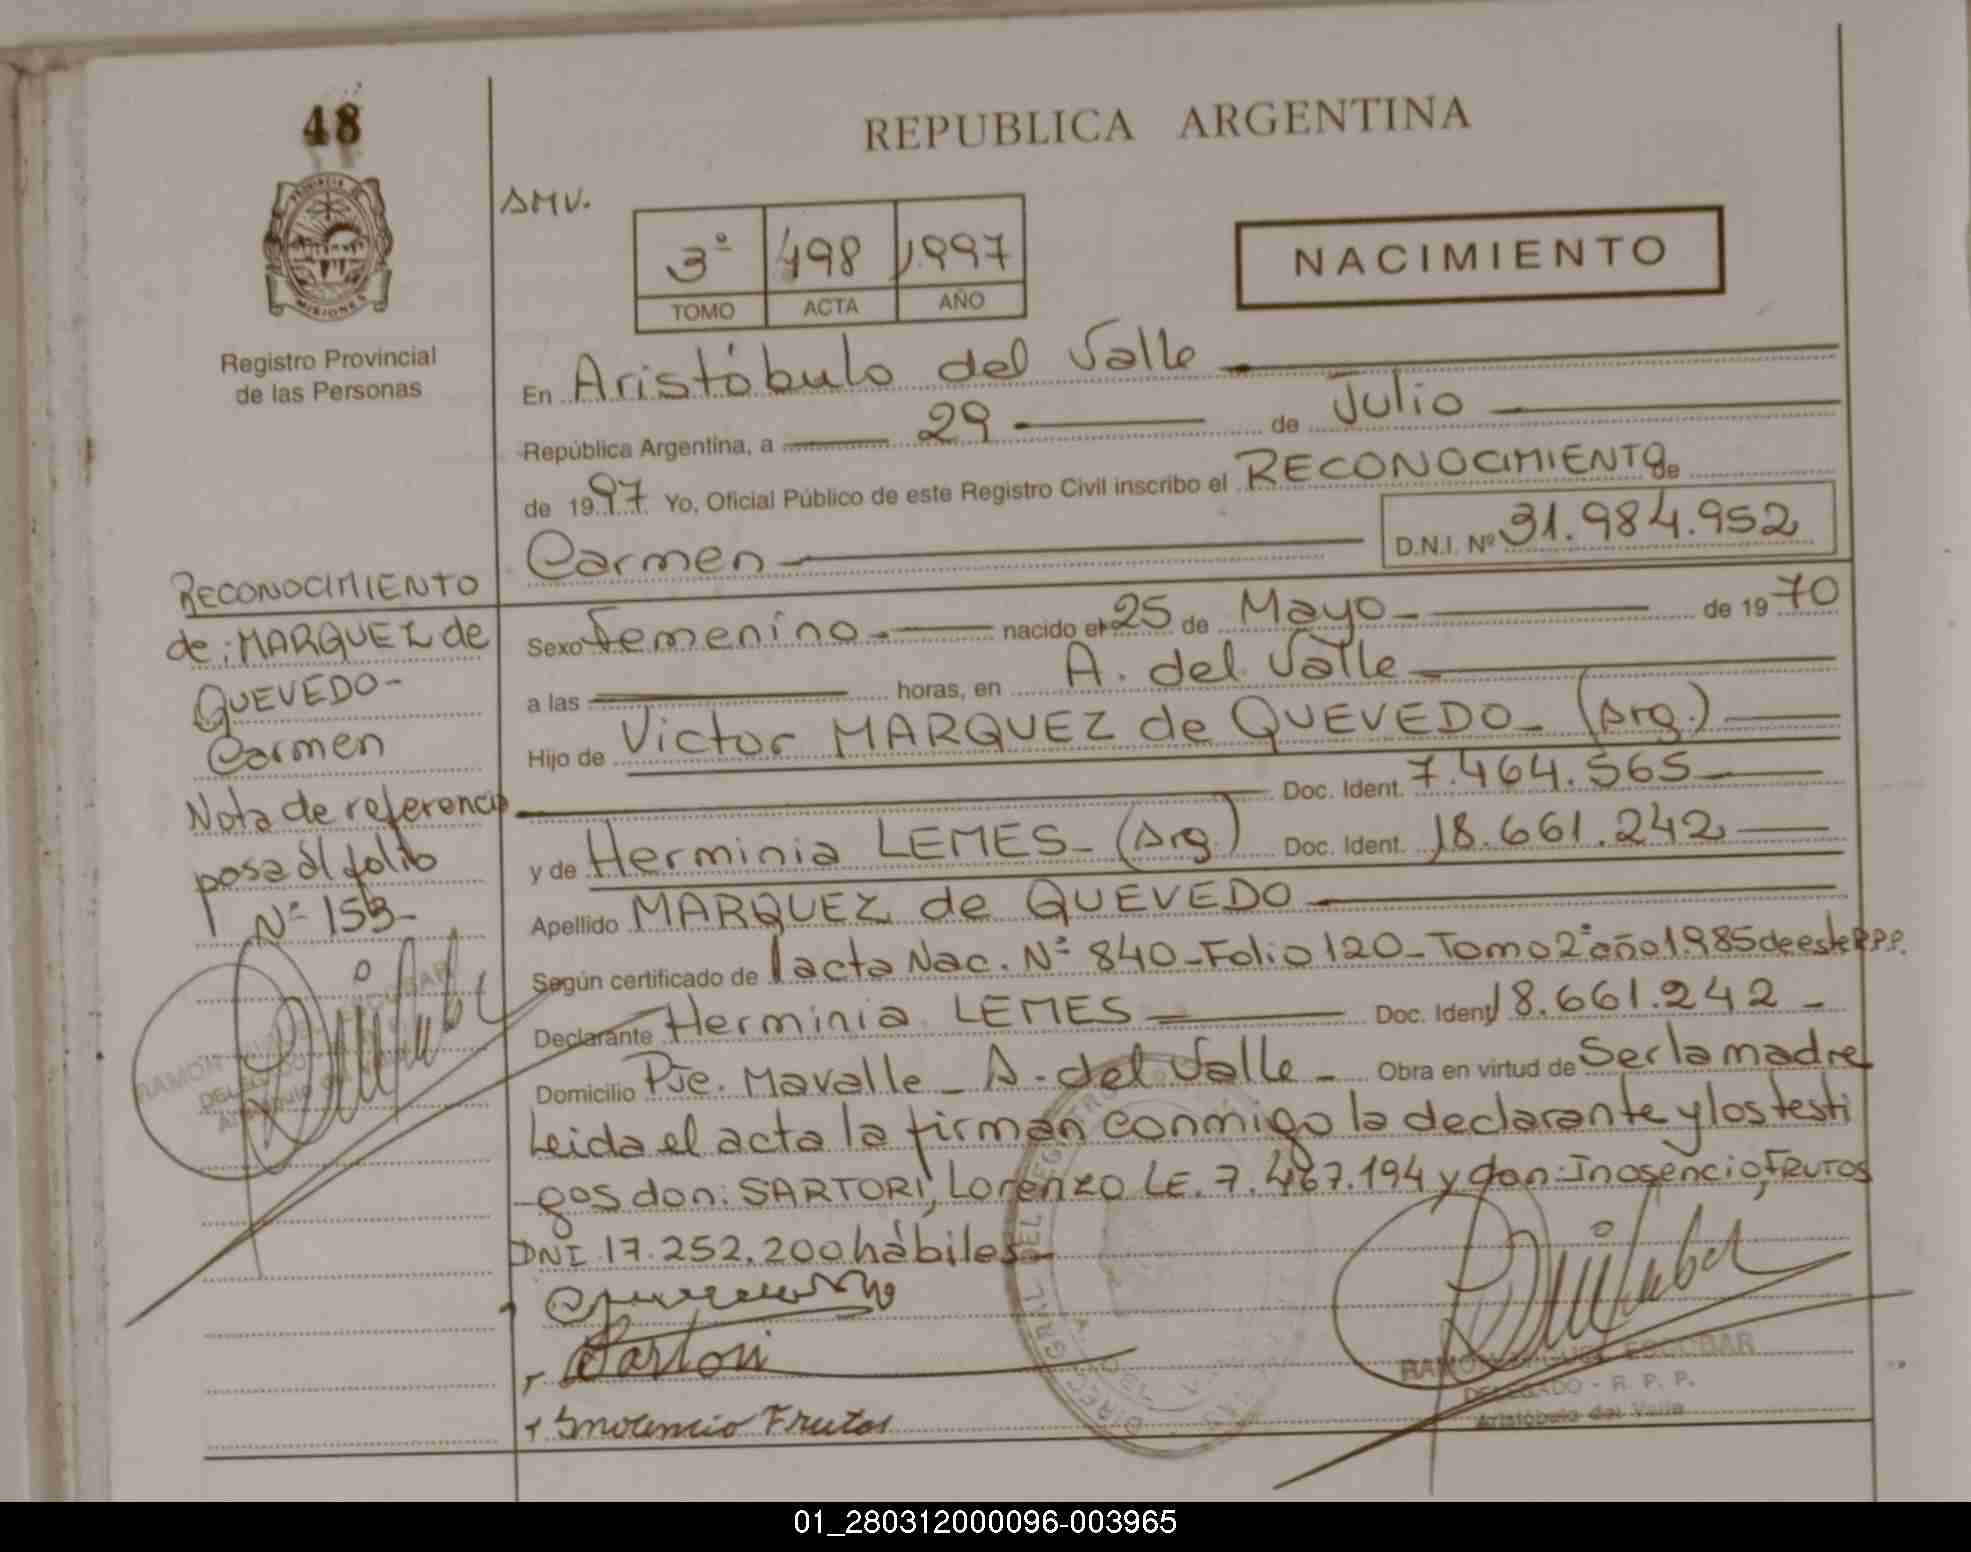 48
REPUBLICA ARGENTINA
PROVINCIA DE
MISIONES
Registro Provincial
de las Personas
AMV.
3º 498 1997
TOMO ACTA AÑO
NACIMIENTO
En Aristóbulo del Valle
República Argentina, a 29 de Julio
de 1997 Yo, Oficial Público de este Registro Civil inscribo el RECONOCIMIENTO de
Carmen D.N.I. Nº 31.984.952
Sexo Femenino.- nacido el 25 de Mayo- de 1970
a las horas, en A. del Valle
Hijo de Victor MARQUEZ de QUEVEDO- (Arg.)
Doc. Ident. 7.464.565
y de Herminia LEMES- (Arg.) Doc. Ident. 18.661.242
Apellido MARQUEZ de QUEVEDO
Según certificado de acta Nac. Nº 840-Folio 120-Tomo 2º año 1.985 de este R.P.P.
Declarante Herminia LEMES Doc. Ident 18.661.242-
Domicilio Pje. Mavalle- A. del Valle- Obra en virtud de Ser la madre
Leida el acta la firman conmigo la declarante y los testi
-gos don: SARTORI, Lorenzo LE. 7.467.194 y don: Inosencio, FRUTOS
DNI 17.252.200 hábiles-
Sartori
Inocencio Frutos
RAMON MIGUEL ESCOBAR
DELEGADO - R. P. P.
Aristóbulo del Valle
RECONOCIMIENTO
de: MARQUEZ de
QUEVEDO-
Carmen
Nota de referencia
pasa al folio
Nº 153-
RAMON MIGUEL ESCOBAR
DELEGADO
Aristóbulo del Valle
01_280312000096-003965